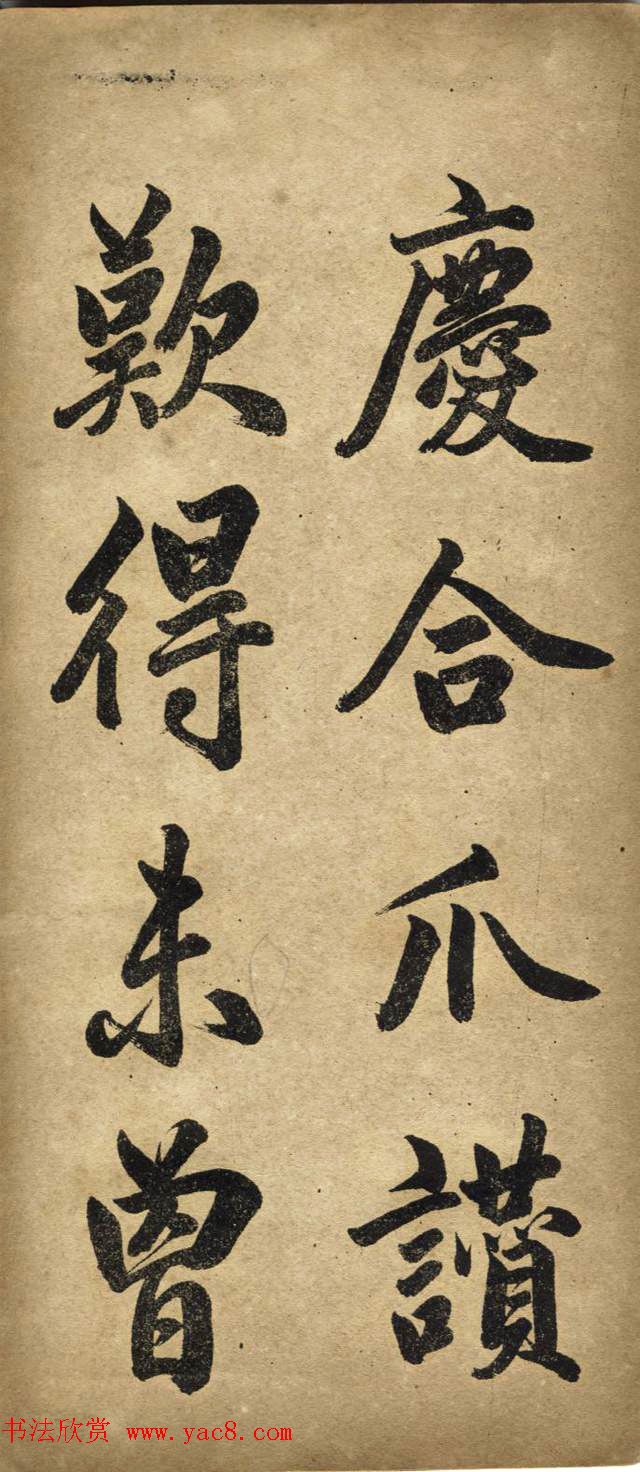 慶合爪讚
歎得未曾
书法欣赏 www.yac8.com